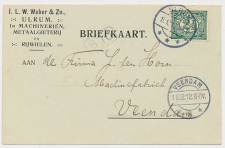 J. L. W. Weber & Zn.,
ULRUM.
In MACHINERIËN,
METAALGIETERIJ
en
RIJWIELEN.
BRIEFKAART.
AAN
De Firma J. ten Horn
Machinefabriek
Veendam
VEENDAM